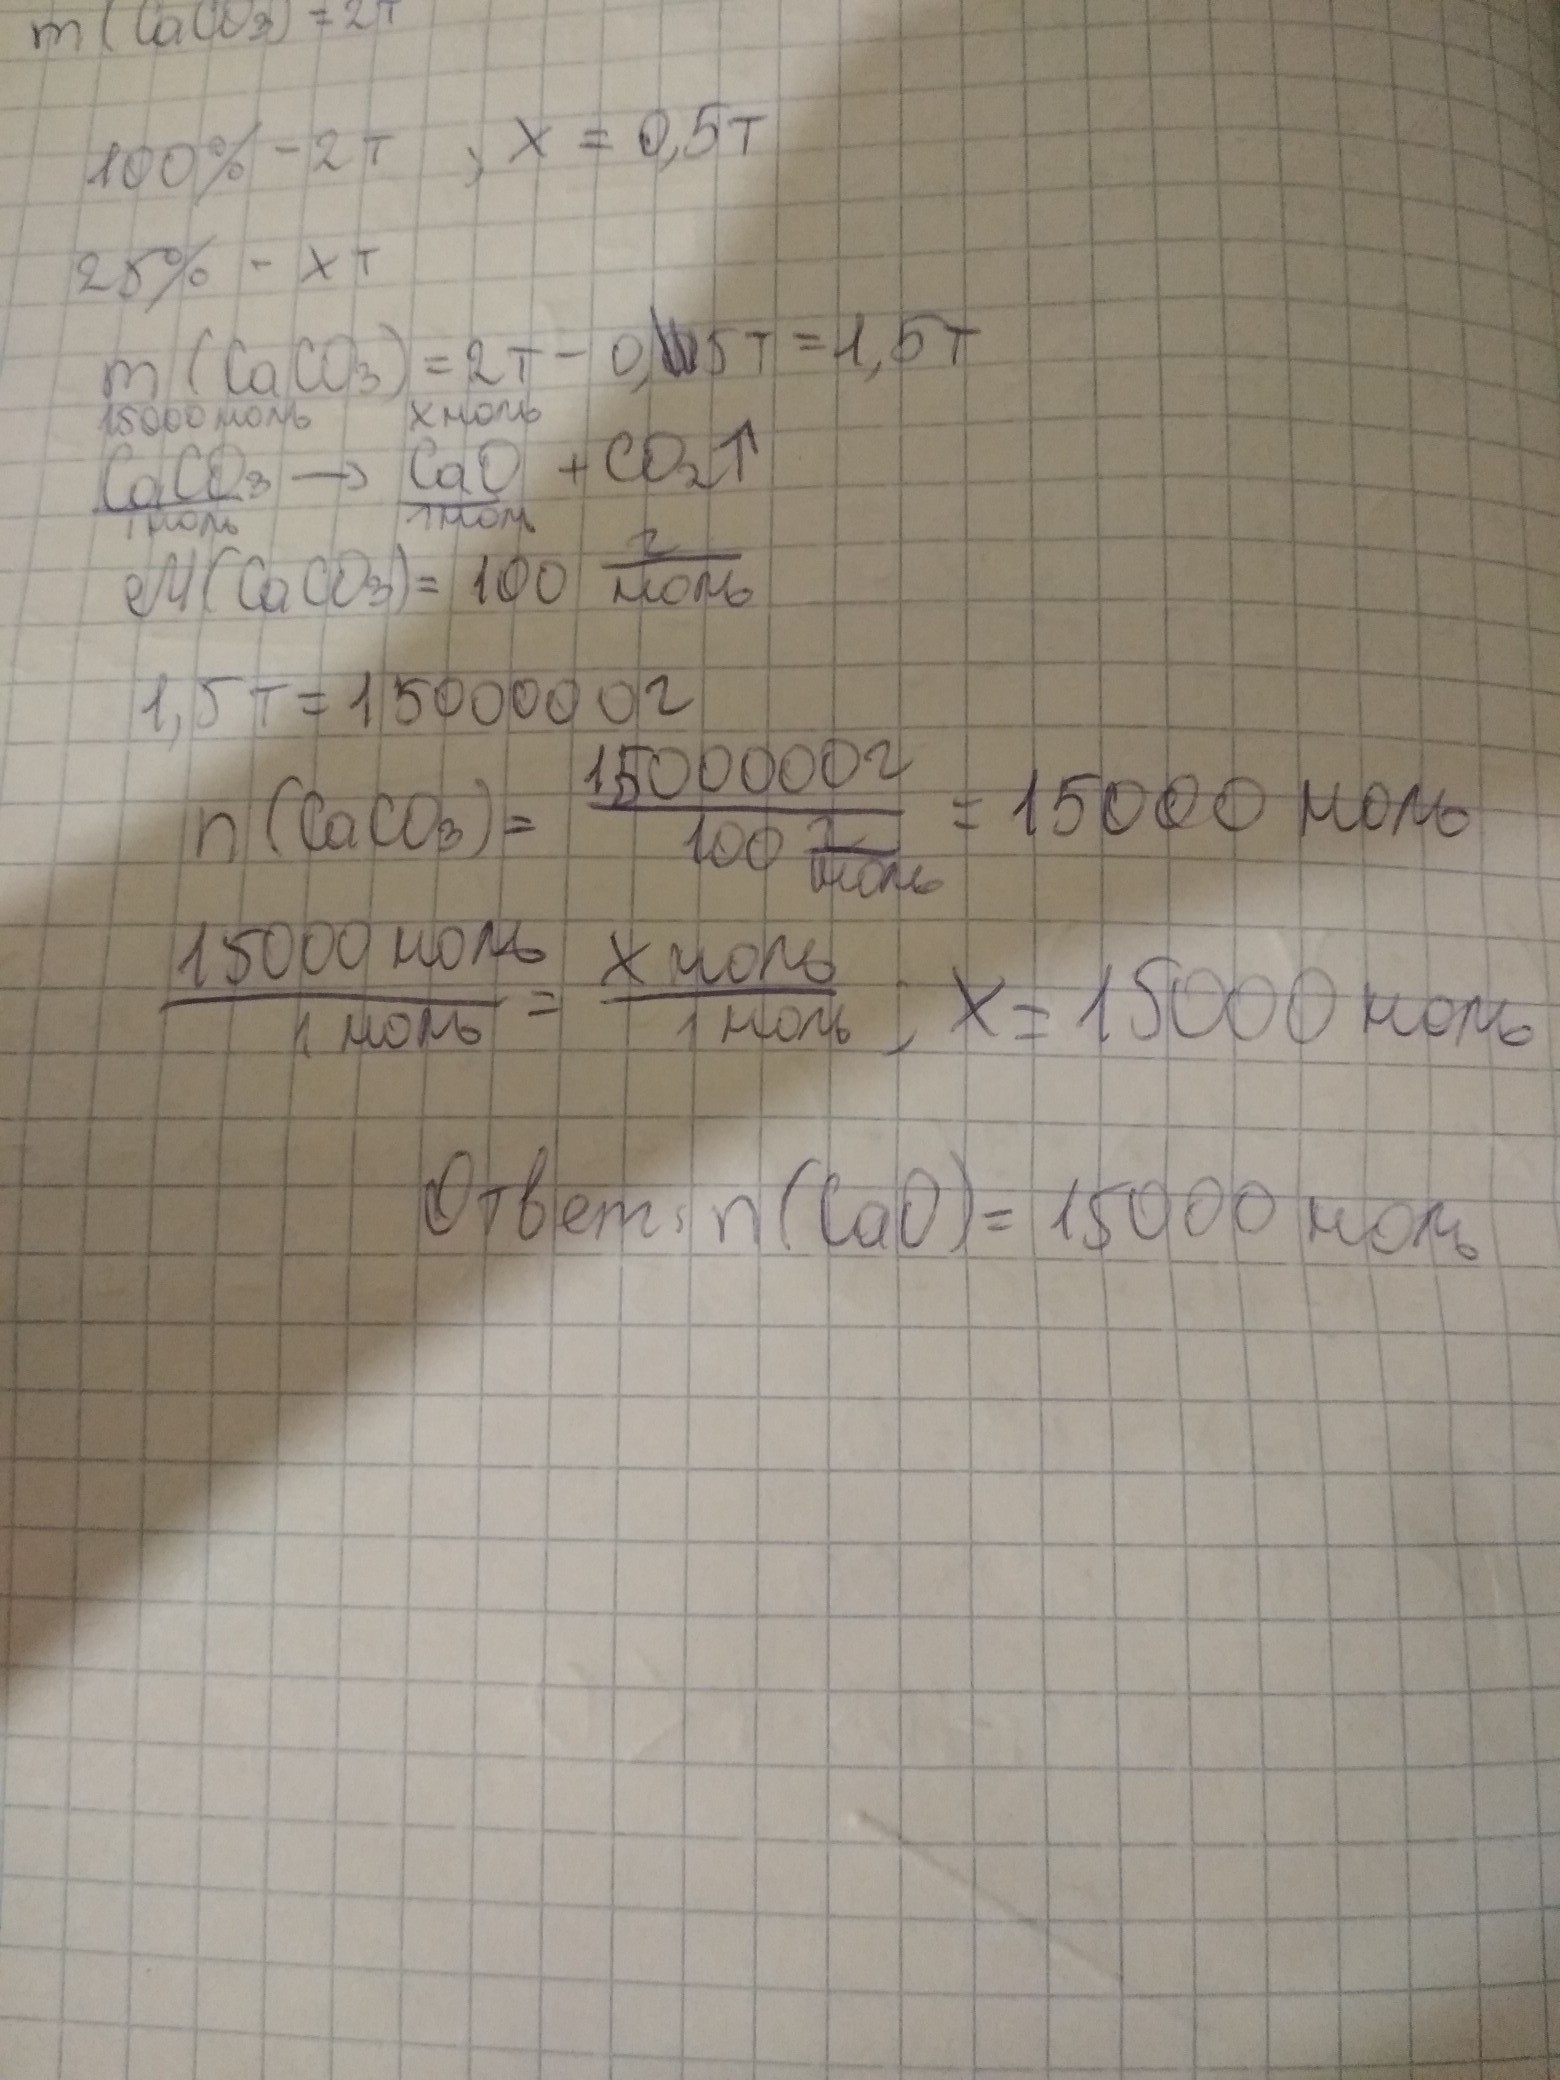 m(CaCO₃) = 2т
100% - 2т , x = 0,5т
25% - xт
m(CaCO₃) = 2т - 0,5т = 1,5т
15000 моль x моль
CaCO₃ → CaO + CO₂↑
1 моль 1 моль
M(CaCO₃) = 100 г/моль
1,5т = 1500000г
n(CaCO₃) = 1500000г / 100 г/моль = 15000 моль
15000 моль / 1 моль = x моль / 1 моль ; x = 15000 моль
Ответ: n(CaO) = 15000 моль